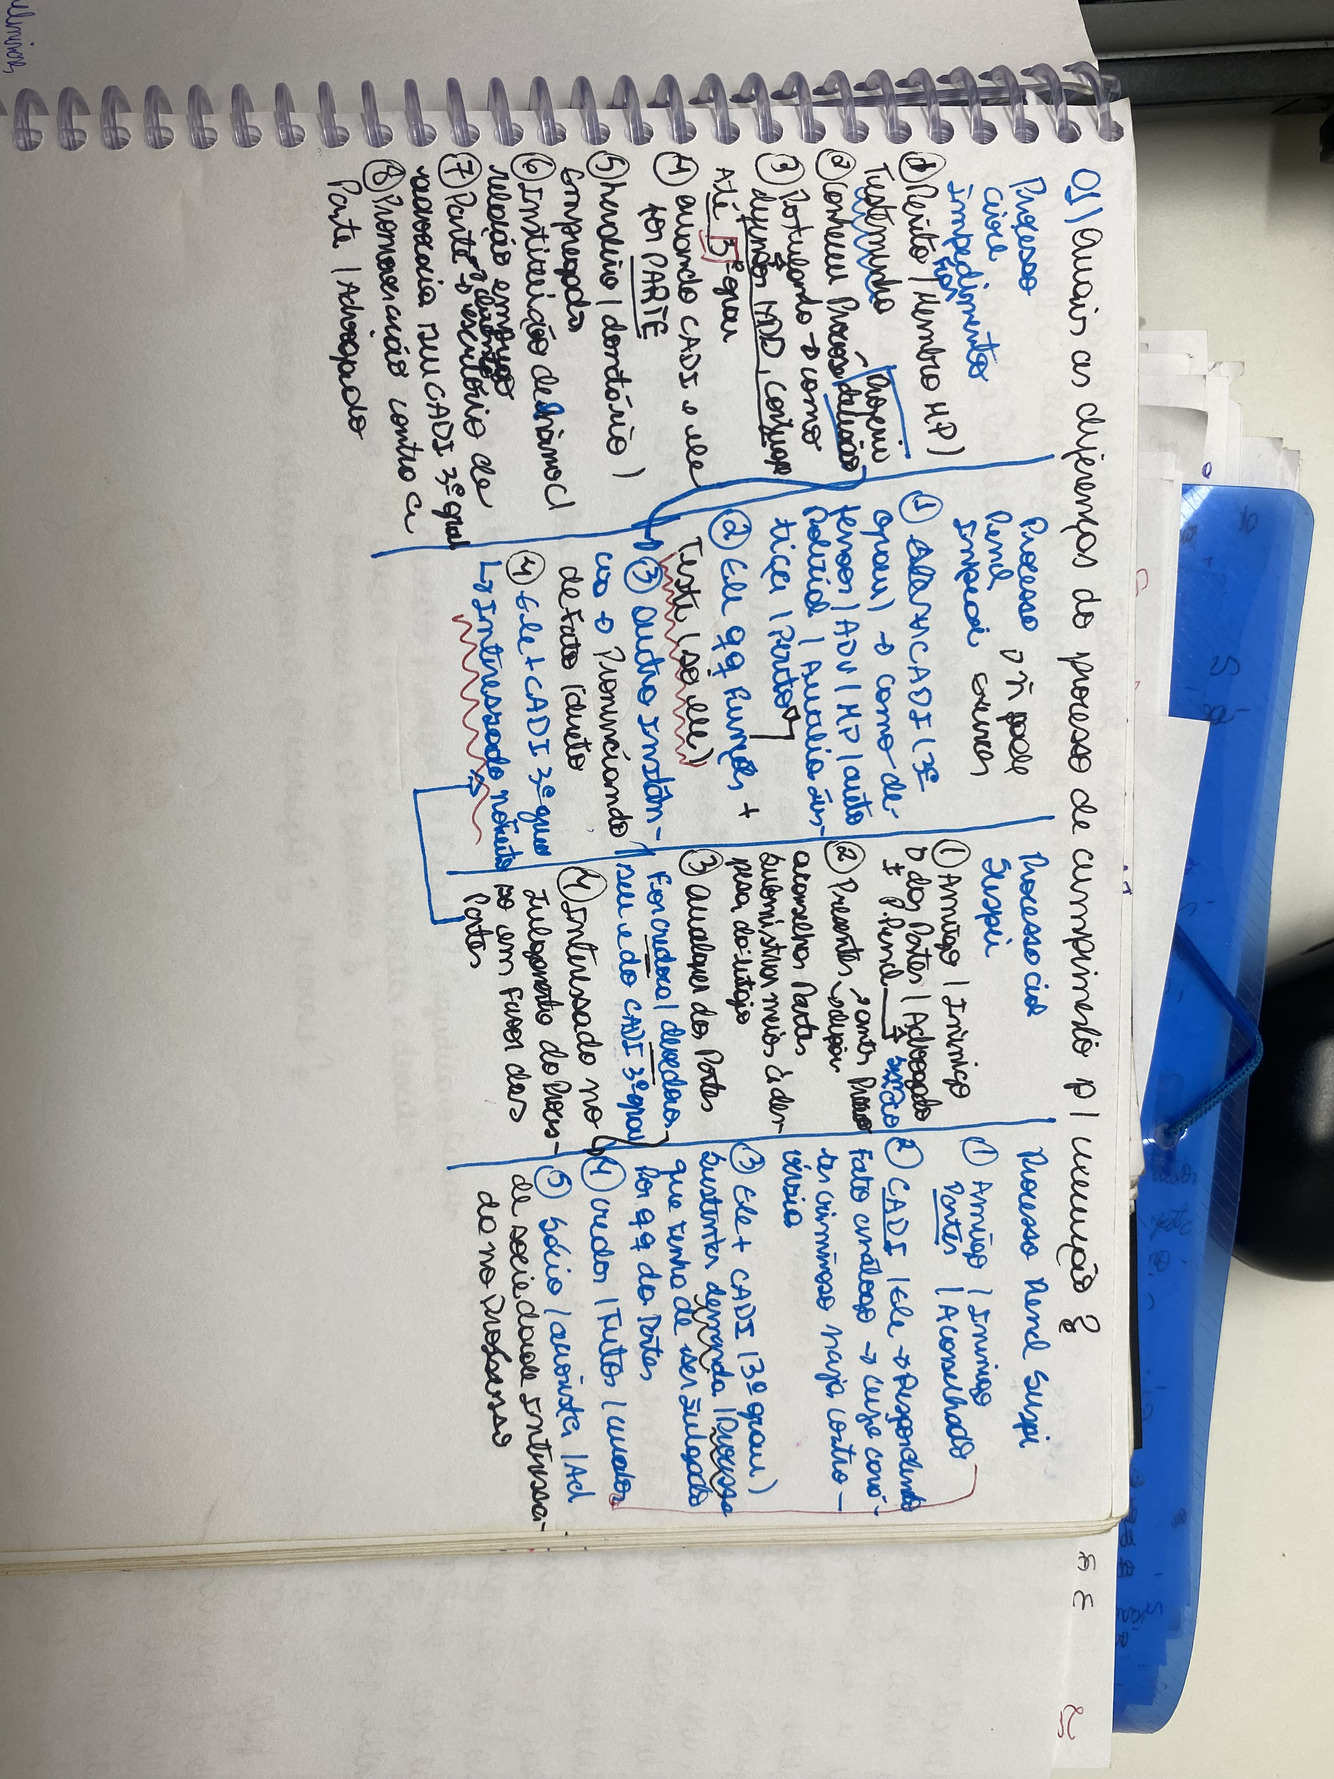 01) Quais as diferenças do processo de cumprimento p/ execução?
Processo
civil
impedimento
① Perito / Membro MP /
Testemunha
② Conheceu Processo decisão
Proferiu
③ Postulando → como
defensor, MDD, conjuge
Até 3º grau
④ quando CADI e ele
for PARTE
⑤ herdeiro / donatário /
Empregado
⑥ Instituição de ensino c/
relação emprego
⑦ Parte → escritório de
advocacia seu CADI 3º grau
⑧ Promover ação contra a
Parte / Advogado
Processo
Penal → ñ pode
Imped exercer
① CADI (3º
grau) → como de-
fensor / ADV / MP / auto
Policial / Auxiliar Jus-
tiça / Perito
② Ele qq Funções +
Teste (só ele)
③ Outra Instân-
cia → Pronunciando
de fato / direito
④ Ele + CADI 3º grau
↳ Interessado no feito
Processo civil
Suspei
① Amigo / Inimigo
das Partes / Advogado
≠ p. Penal
② Presentes → antes Processo
aconselhar Partes
subministrar meios à des-
pesa do litígio
③ Qualquer das Partes
For credora / devedora
seu e do CADI 3º grau
④ Interessado no
Julgamento do Proces-
so em favor das
Partes
Processo Penal Suspei
① Amigo / Inimigo
Partes / Aconselhado
② CADI / Ele → Respondendo
Fato análogo → cujo cará-
ter criminoso haja contro-
vérsia
③ Ele + CADI (3º grau)
sustentar demanda / Processo
que tenha de ser Julgado
Por qq da Partes
④ credor / Tutor / curador
⑤ Sócio / acionista / Ad
de sociedade Interessa-
da no Processo